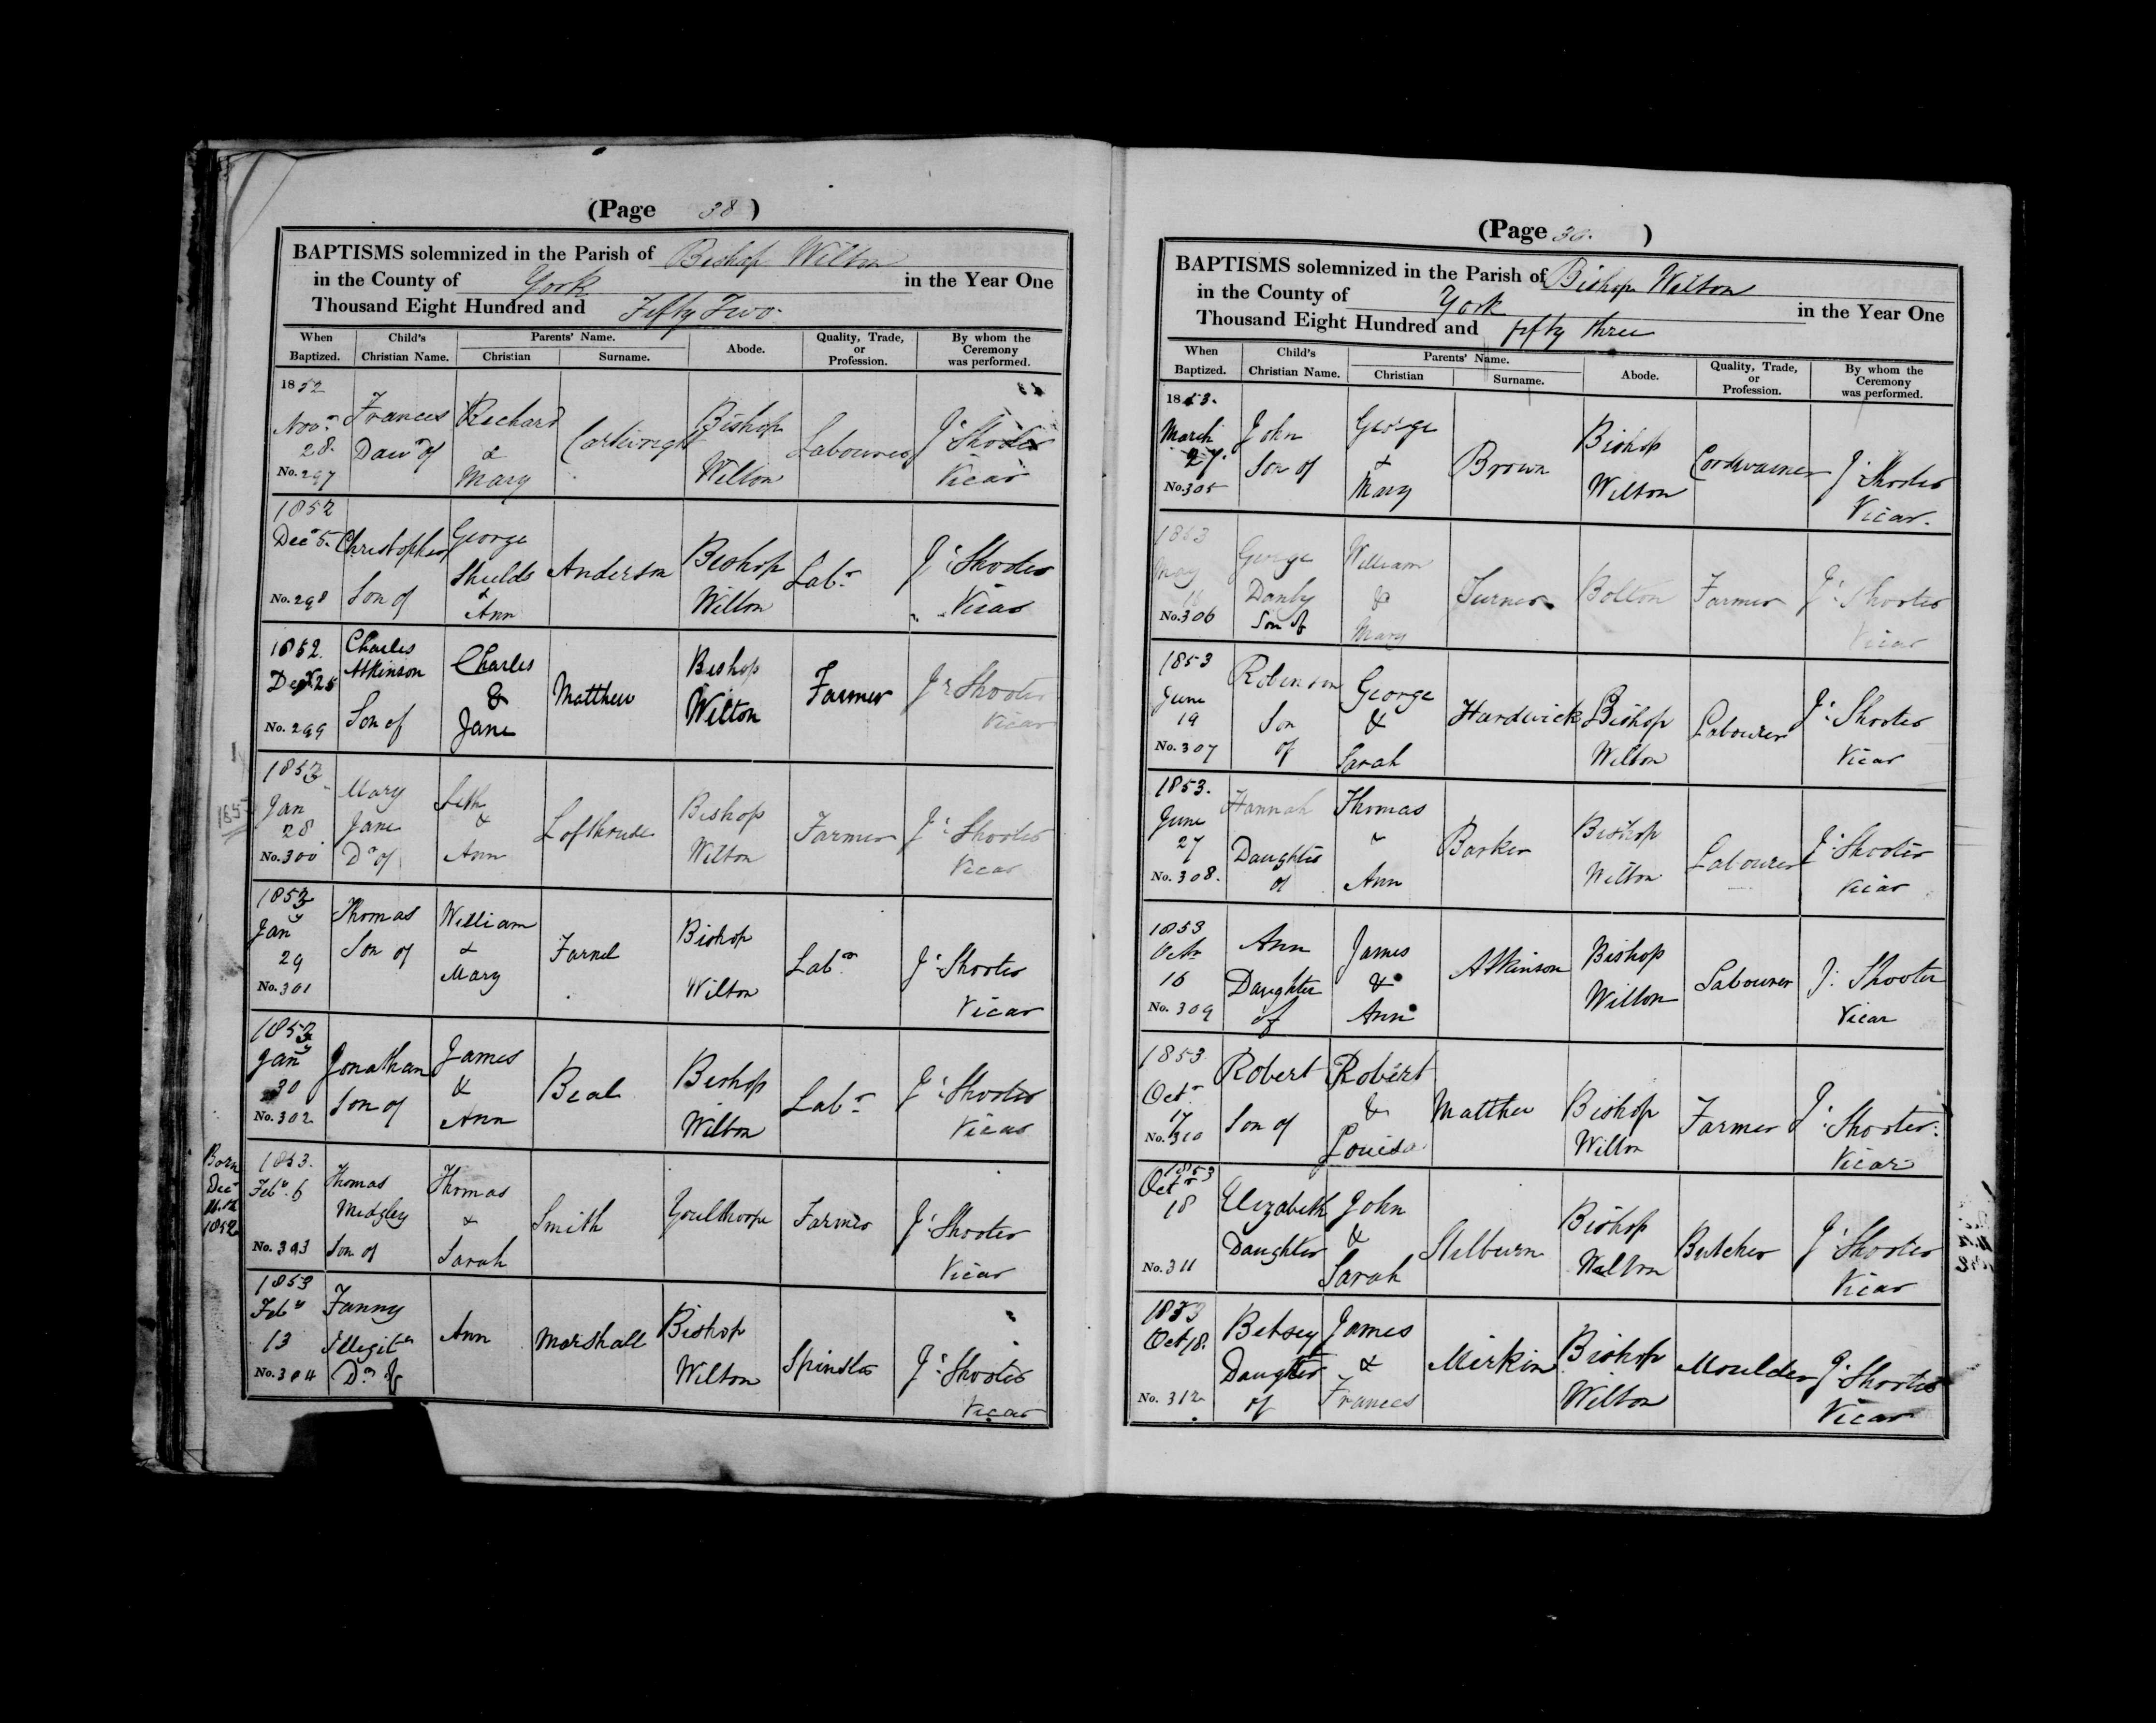 (Page 38)
BAPTISMS solemnized in the Parish of Bishop Wilton
in the County of York in the Year One
Thousand Eight Hundred and Fifty Two.
When Baptized. Child's Christian Name. Parents' Name. Christian Surname. Abode. Quality, Trade, or Profession. By whom the Ceremony was performed.
1852 Novr 28. No. 297 Frances Daur of Richard & Mary Cartwright Bishop Wilton Labourer Jn Shooter Vicar
1852 Decr 5. No. 298 Christopher Son of George Shields & Ann Anderson Bishop Wilton Labr Jn Shooter Vicar
1852. Decr 25 No. 299 Charles Atkinson Son of Charles & Jane Matthew Bishop Wilton Farmer Jn Shooter Vicar
1853 Jan 28 No. 300 Mary Jane Dr of Seth & Ann Lofthouse Bishop Wilton Farmer Jn Shooter Vicar
1853 Jany 29 No. 301 Thomas Son of William & Mary Farnel Bishop Wilton Labr Jn Shooter Vicar
1853 Jany 30 No. 302 Jonathan Son of James & Ann Beal Bishop Wilton Labr Jn Shooter Vicar
Born Decr 1852
1853. Feby. 6 No. 303 Thomas Midgley Son of Thomas & Sarah Smith Youlthorpe Farmer Jn Shooter Vicar
1853 Feby 13 No. 304 Fanny Illegite Dr of Ann Marshall Bishop Wilton Spinster Jn Shooter Vicar
(Page 39.)
BAPTISMS solemnized in the Parish of Bishop Wilton
in the County of York in the Year One
Thousand Eight Hundred and fifty three
When Baptized. Child's Christian Name. Parents' Name. Christian Surname. Abode. Quality, Trade, or Profession. By whom the Ceremony was performed.
1853. March 27. No. 305 John Son of George & Mary Brown Bishop Wilton Cordwainer Jn Shooter Vicar.
1853 May No. 306 George Danby Son of William & Mary Turner Bolton Farmer Jn Shooter Vicar
1853 June 19 No. 307 Robinson Son of George & Sarah Hardwick Bishop Wilton Labourer Jn Shooter Vicar
1853. June 27 No. 308. Hannah Daughter of Thomas & Ann Barker Bishop Wilton Labourer Jn Shooter Vicar
1853 Octr 16 No. 309 Ann Daughter of James & Ann Atkinson Bishop Wilton Labourer J. Shooter Vicar
1853 Octr 17 No. 310 Robert Son of Robert & Louisa Matthew Bishop Wilton Farmer Jn Shooter Vicar
1853 Octr 18 No. 311 Elizabeth Daughter John & Sarah Stilburn Bishop Wilton Butcher Jn Shooter Vicar
1853 Oct 18. No. 312 Betsey Daughter of James & Frances Mirkin Bishop Wilton Moulder Jn Shooter Vicar